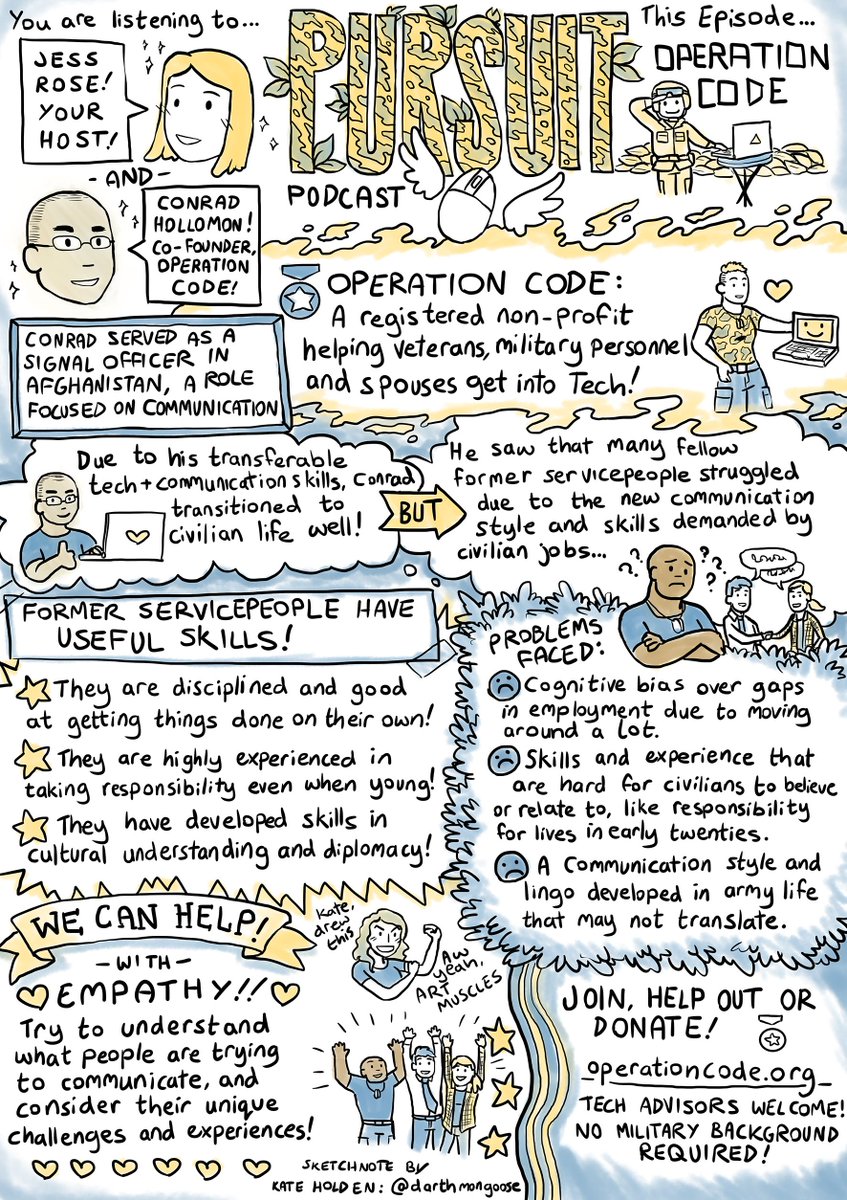 You are listening to...
JESS
ROSE!
YOUR
HOST!
PURSUIT
PODCAST
This Episode...
OPERATION
CODE
-AND-
CONRAD
HOLLOMON!
CO-FOUNDER,
OPERATION
CODE!
OPERATION CODE:
A registered non-profit
helping veterans, military personnel
and spouses get into Tech!
CONRAD SERVED AS A
SIGNAL OFFICER IN
AFGHANISTAN, A ROLE
FOCUSED ON COMMUNICATION
Due to his transferable
tech + communication skills, Conrad
transitioned to
civilian life well!
BUT
He saw that many fellow
former servicepeople struggled
due to the new communication
style and skills demanded by
civilian jobs...
FORMER SERVICEPEOPLE HAVE
USEFUL SKILLS!
They are disciplined and good
at getting things done on their own!
They are highly experienced in
taking responsibility even when young!
They have developed skills in
cultural understanding and diplomacy!
? ? ? ? ? ?
PROBLEMS
FACED:
Cognitive bias over gaps
in employment due to moving
around a lot.
Skills and experience that
are hard for civilians to believe
or relate to, like responsibility
for lives in early twenties.
A Communication style and
lingo developed in army life
that may not translate.
WE CAN HELP!
-WITH-
EMPATHY!!
Try to understand
what people are trying
to communicate, and
consider their unique
challenges and experiences!
Kate,
drew
this
Aw
yeah,
ART
MUSCLES
SKETCHNOTE BY
KATE HOLDEN: @darthmongoose
JOIN, HELP OUT OR
DONATE!
operationcode.org
TECH ADVISORS WELCOME!
NO MILITARY BACKGROUND
REQUIRED!